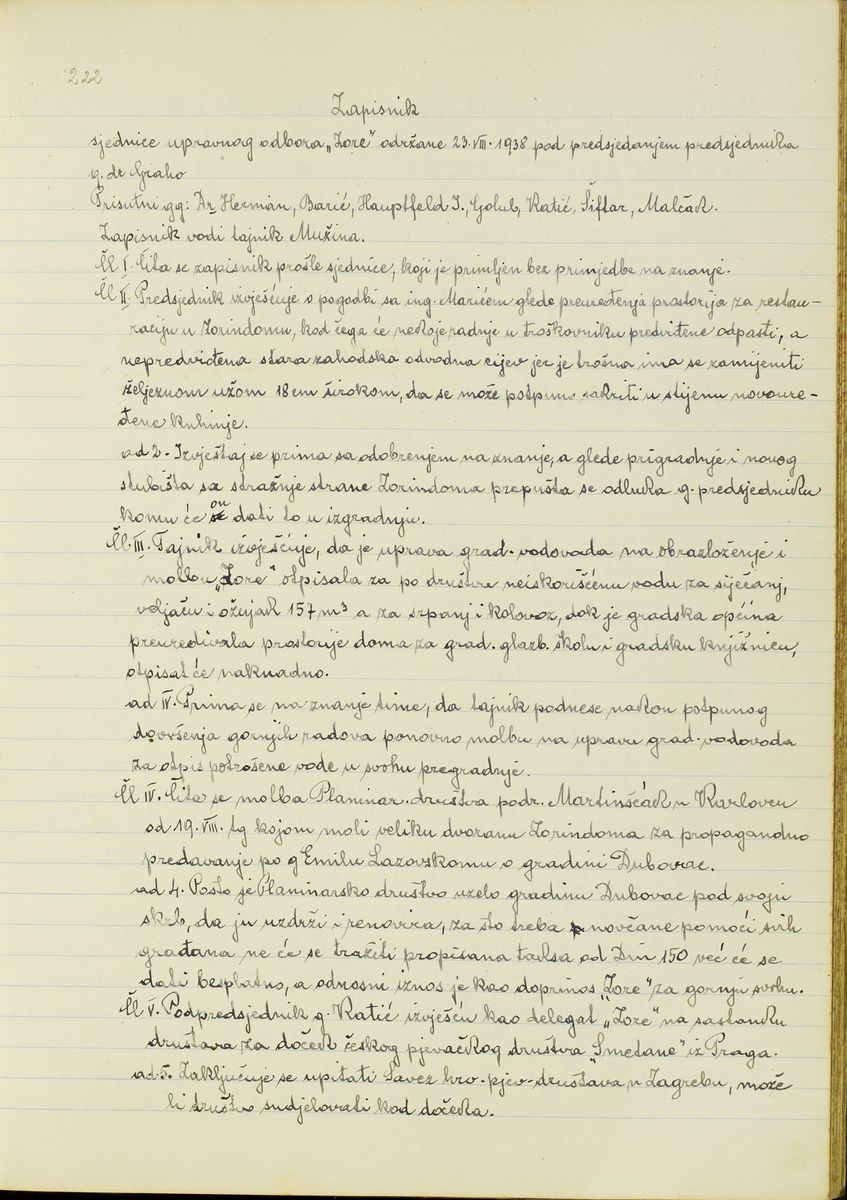 222
Zapisnik
sjednice upravnog odbora „Zore" održane 23. VIII. 1938 pod predsjedanjem predsjednika
g. dr Graho
Prisutni gg: Dr Herman, Barić, Hauptfeld I., Golub, Katić, Šiftar, Malčak.
Zapisnik vodi tajnik Mužina.
Čl I. Čita se zapisnik prošle sjednice, koji je primljen bez primjedbe na znanje.
Čl II. Predsjednik izvješćuje o pogodbi sa ing. Marićem glede preuređenja prostorija za restau-
raciju u Zorindomu, kod čega će nekoje radnje u troškovniku predviđene odpasti, a
nepredviđena stara zahodska odvodna cijev jer je trošna ima se zamijeniti
željeznom užom 18 cm širokom, da se može potpuno sakriti u stijenu novoure-
đene kuhinje.
ad 2. Izvještaj se prima sa odobrenjem na znanje, a glede prigradnje i novog
stubišta sa stražnje strane Zorindoma prepušta se odluka g. predsjedniku
komu će on dati to u izgradnju.
Čl. III. Tajnik izvješćuje, da je uprava grad. vodovoda na obrazloženje i
molbu „Zore" otpisala za po društvu neiskorišćenu vodu za siječanj,
veljaču i ožujak 157 m³ a za srpanj i kolovoz, dok je gradska općina
preuređivala prostorije doma za grad. glazb. školu i gradsku knjižnicu,
otpisat će naknadno.
ad IV. Prima se na znanje time, da tajnik podnese nakon potpunog
dovršenja gornjih radova ponovno molbu na upravu grad. vodovoda
za otpis potrošene vode u svrhu pregradnje.
Čl IV. Čita se molba Planinar. društva podr. Martinšćak u Karlovcu
od 19. VIII. tg kojom moli veliku dvoranu Zorindoma za propagandno
predavanje po g Emilu Lazovskomu o gradini Dubovac.
ad 4. Pošto je Planinarsko društvo uzelo gradinu Dubovac pod svoju
skrb, da ju uzdrži i renovira, za što treba novčane pomoći svih
građana ne će se tražiti propisana taksa od Din 150 već će se
dati besplatno, a odnosni iznos je kao doprinos „Zore" za gornju svrhu.
Čl V. Podpredsjednik g. Katić izvješću kao delegat „Zore" na sastanku
društava za doček češkog pjevačkog društva „Smetane" iz Praga.
ad 5. Zaključuje se upitati Savez hrv. pjev. društava u Zagrebu, može
li društvo sudjelovati kod dočeka.